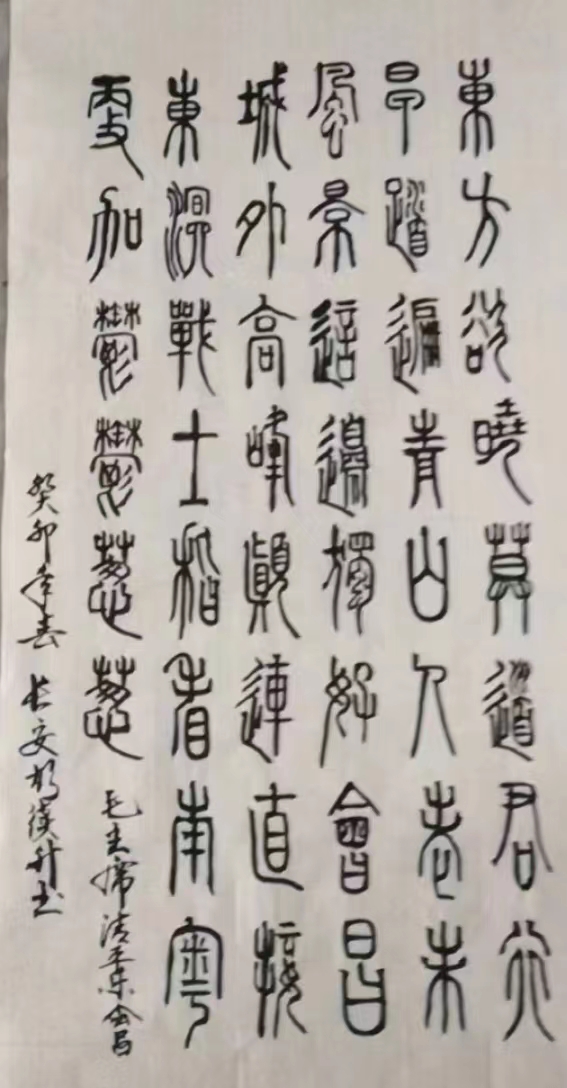 東方欲曉莫道君行
早踏遍青山人老未
風景這邊獨好會昌
城外高峰顛連直接
東溟戰士指看南粵
更加鬱鬱蔥蔥 毛主席清平乐会昌
癸卯年春 长安 漢升书